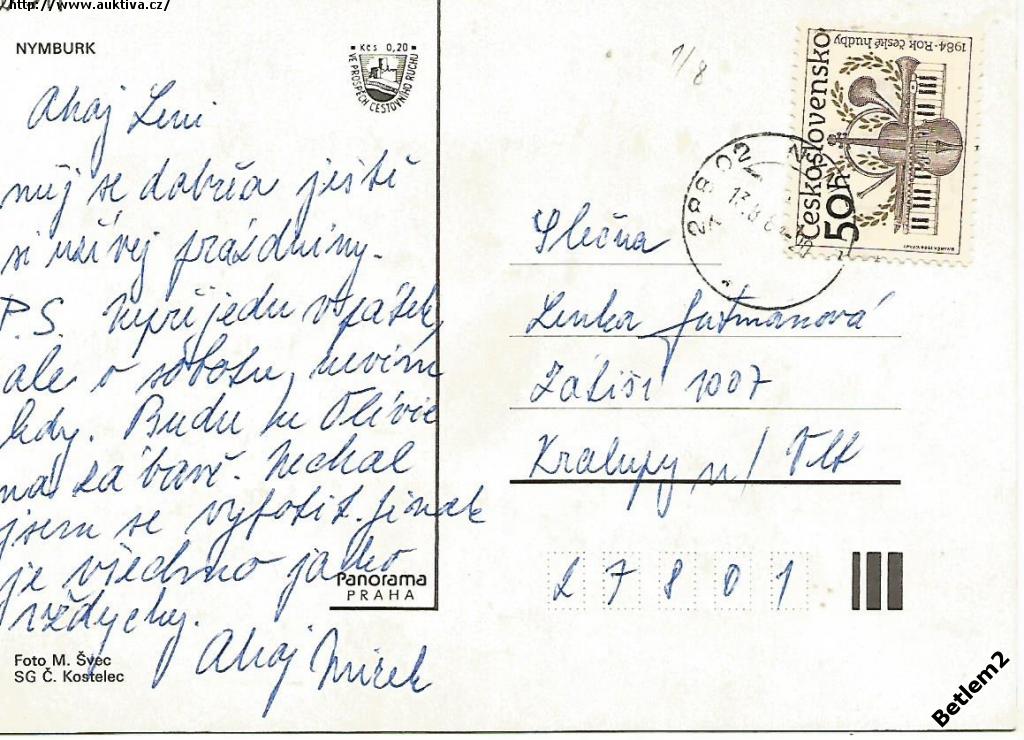 http://www.auktiva.cz/
NYMBURK
Kčs 0,20
VE PROSPĚCH CESTOVNÍHO RUCHU
Ahoj Leni
měj se dobřea ještě
si užívej prázdniny.
P.S. Nepřijedu v pátek,
ale v sobotu, nevím
kdy. Budu ve Olívie
na zábavě. Nechal
jsem se vyfotit. Jinak
je všechno jako
vždycky.
Ahoj Mirek
Panorama
PRAHA
Foto M. Švec
SG Č. Kostelec
1/8
Československo
50h
1984-Rok české hudby
288 02
Slečna
Lenka Gutmanová
Zátiší 1007
Kralupy n/Vlt
27801
Betlem2